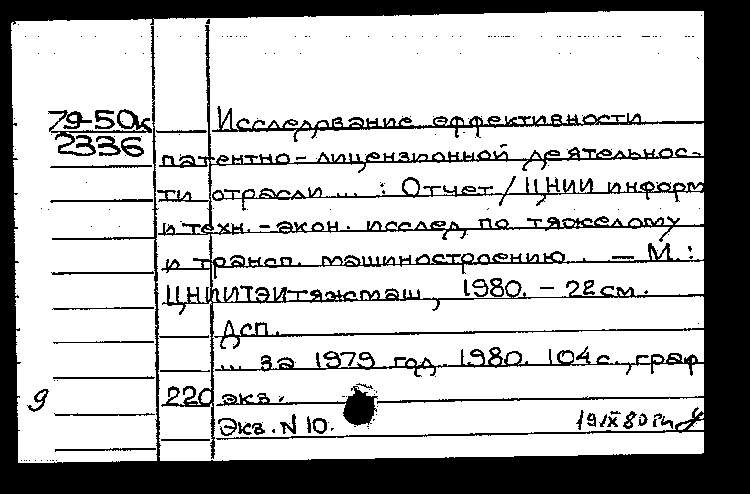 79-50к
2336
Исследование эффективности
патентно-лицензионной деятельнос-
ти отрасли ... : Отчет / ЦНИИ информ
и техн.-экон. исслед. по тяжелому
и трансп. машиностроению. — М.:
ЦНИИТЭИтяжмаш, 1980. - 22 см.
Дсп.
... за 1979 год. 1980. 104 с., граф
9 220 экз.
Экз. N 10.
19/IX 80